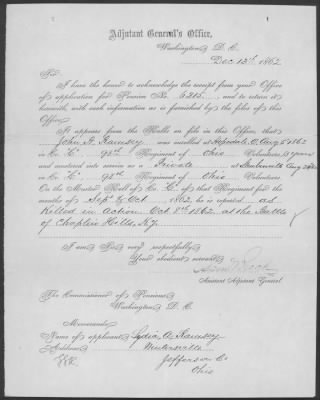 Adjutant General's Office,
Washington D. C.
Dec 13th, 1862
Sir:
I have the honor to acknowledge the receipt from your Office
of application for Pension No. 6215, and to return it
herewith, with such information as is furnished by the files of this
Office.
It appears from the Rolls on file in this Office, that
John H. Ramsey was enrolled at O, Aug 5 1862
in Co. 98th Regiment of Ohio Volunteers, 3 years
and mustered into service as a Private at Steubenville Aug
in Co. 98th Regiment of Ohio Volunteers.
On the Muster Roll of Co. of that Regiment for the
months of Sept & Oct 1862, he is reported as
Killed in action Oct 8th 1862, at the Battle
of Chaplin Hills, Ky.
I am Sir, very respectfully
Your obedient servant
Assistant Adjutant General
The Commissioner of Pensions
Washington D. C.
Memoranda
Name of applicant Lydia A. Ramsey
Address Wintersville
Jefferson Co
Ohio